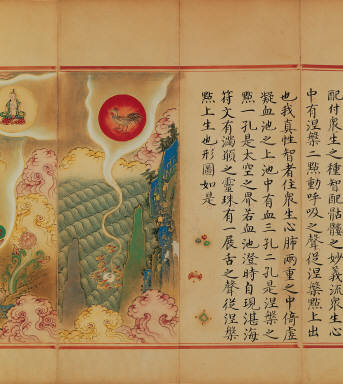 配付衆生之種智配骷髏之妙義流衆生心
中有涅槃二點動呼吸之聲從涅槃點上出
也我真性智者住衆生心肺兩重之中倚虛
凝血池之上池中有血三孔二孔是涅槃之
點一孔是太空之界若血池澄時自現湛海
符文有濁眼之靈珠有一展舌之聲從涅槃
點上生也形圖如是